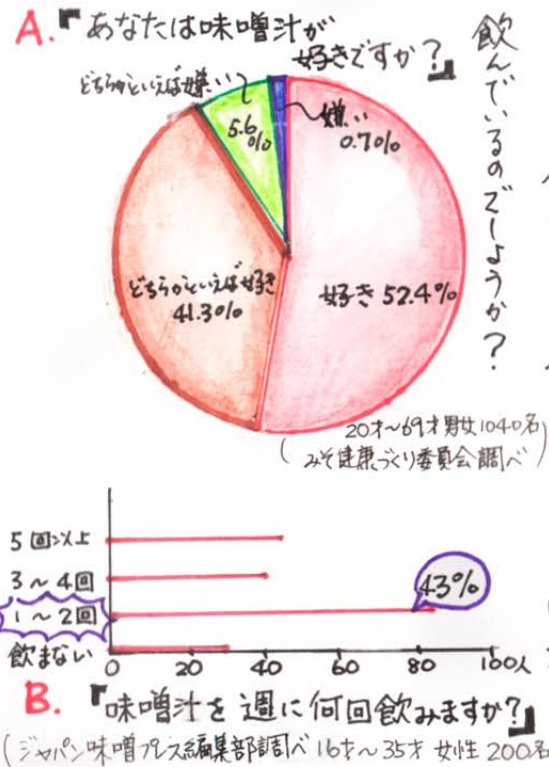 A.『あなたは味噌汁が
好きですか？』
飲んでいるのでしょうか？
どちらかといえば嫌い
5.6
%
嫌い
0.7%
どちらかといえば好き
41.3%
好き 52.4%
20才〜69才男女1040名
(みそ健康づくり委員会調べ)
5回以上
3〜4回
1〜2回
飲まない
43%
0 20 40 60 80 100人
B.『味噌汁を週に何回飲みますか？』
(ジャパン味噌プレス編集部調べ 16才〜35才 女性 200名